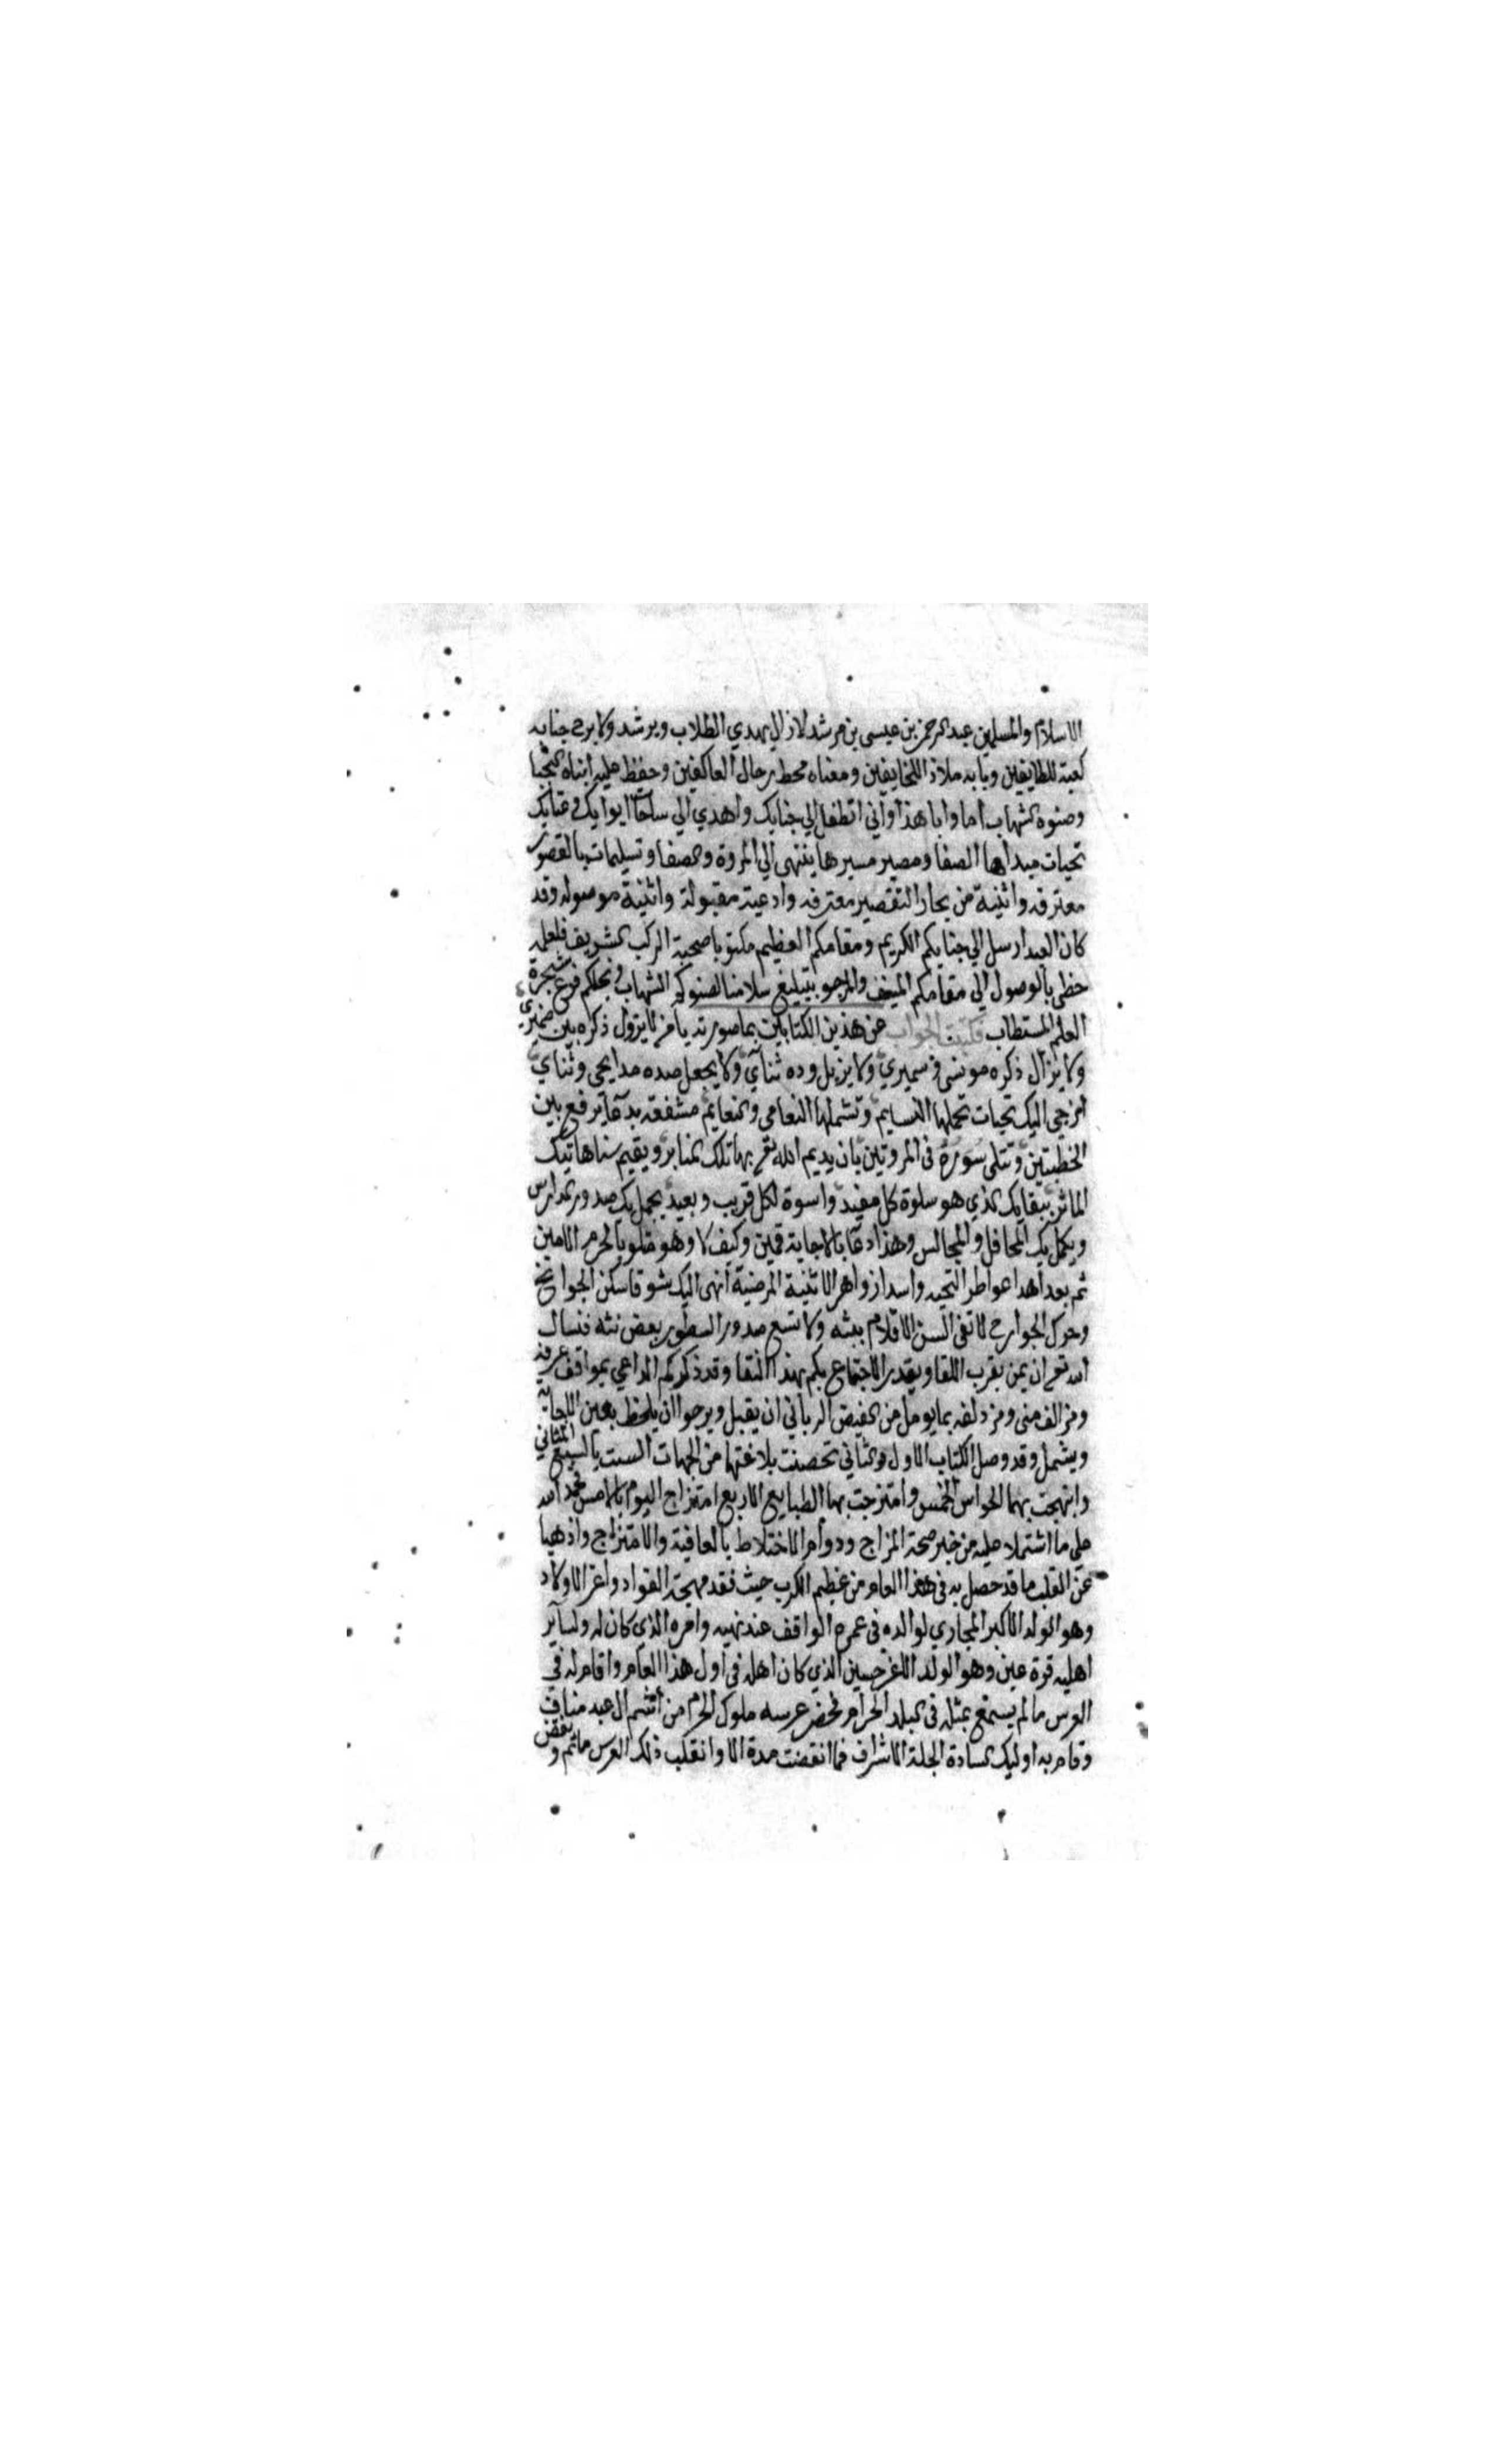 الاسلام والمسلمين عبد الرحمن بن عيسى بن مرشد لازال يهدي الطلاب ويرشد ولا برح جنابه
كعبة للطايفين وبابه ملاذ اللخايفين ومغناه محط رحال العاكفين وحفظ عليه ابناه النجبا
وصنوه الشهاب اما وابا هذا واني اتطفل الي جنابك واهدي الي ساحة ابوابك وعتابك
تحيات مبداها الصفا ومصير مسيرها ينتهى الي المروة والصفا وتسليمات بالقصور
معترفه واثنية من بحار التقصير مغترفه وادعية مقبولة واثنية موصوله وقد
كان العبد ارسل الي جنابكم الكريم ومقامكم العظيم مكتوبا صحبة الركب الشريف فلعله
حظى بالوصول الي مقامكم المنيف والمرجو بتبليغ سلامنا لصنوكم الشهاب ونجلكم فرع شجرة
العلم المستطاب فكتبت الجواب عن هذين الكتابين بما صورته يا من لا يزول ذكره بين ضميري
ولا يزال ذكره مونسى وسميري ولا يزيل وده ثناي ولا يجعل صده مدايحى وثناي
ازجي اليك تحيات تحملها النسايم وتشملها النعامى والنعايم مشفعة بدعا يرفع بين
الخطبتين وتتلى سوره فى المروتين بان يديم الله تعالى بها تلك المنابر ويقيم سناهاتيك
الماثر ببقايك الذي هو سلوة كل مفيد واسوة لكل قريب وبعيد يجمل بك صدور المدارس
ويكمل بك المحافل والمجالس وهذا دعا بالاجابة قمين وكيف لا وهو متلو بالحرم الامين
ثم بعد اهدا عواطر التحيه واسدا زواهر الاثنية المرضية انهى اليك شوقا سكن الجوانح
وحرك الجوارح لا تفى السن الاقلام ببثه ولا تسع صدور السطور بعض نثه فنسال
الله تعالى ان يمن بقرب اللقا ويقدر الاجتماع بكم بهذا النقا وقد ذكركم الداعي بمواقف عرفه
ومزالف منى ومزدلفه بما يومل من الفيض الرباني ان يقبل ويرجوا ان يلحظ بعين الاجابة
ويشمل وقد وصل الكتاب الاول والثاني تحصنت بلاغتها من الجهات الست بالسبع المثاني
وابتهجت بهما الحواس الخمس وامتزجت بها الطبايع الاربع امتزاج اليوم بالامس فحمد الله
على ما اشتملا عليه من خبر صحة المزاج ودوام الاختلاط بالعافية والامتزاج واذهبا
عن القلب ما قد حصل به فى هذا العام من عظيم الكرب حيث فقد مهجة الفواد واعز الاولاد
وهو الولد الاكبر المجاري لوالده فى عمره الواقف عند نهيه وامره الذي كان له ولساير
اهليه قرة عين وهو الولد الاغر حسين الذي كان اهله فى اول هذا العام واقام له في
العرس ما لم يسمع بمثله فى البلد الحرام وحضر عرسه ملوك الحرم من ال عبد مناف
وقام به اوليك السادة الجلة الاشراف فما انقضت مدة الا وانقلب ذلك العرس ماتم و